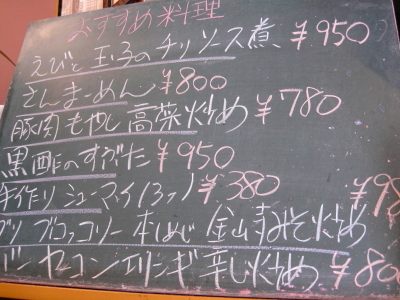 おすすめ料理
えびと玉子のチリソース煮 ¥950
さんまーめん ¥800
豚肉もやし高菜炒め ¥780
黒酢のすぶた ¥950
手作りシューマイ(3コ) ¥380
¥98
ブロッコリー本しめじ金山寺みそ炒め
ヤーコンエリンギ辛し炒め ¥80